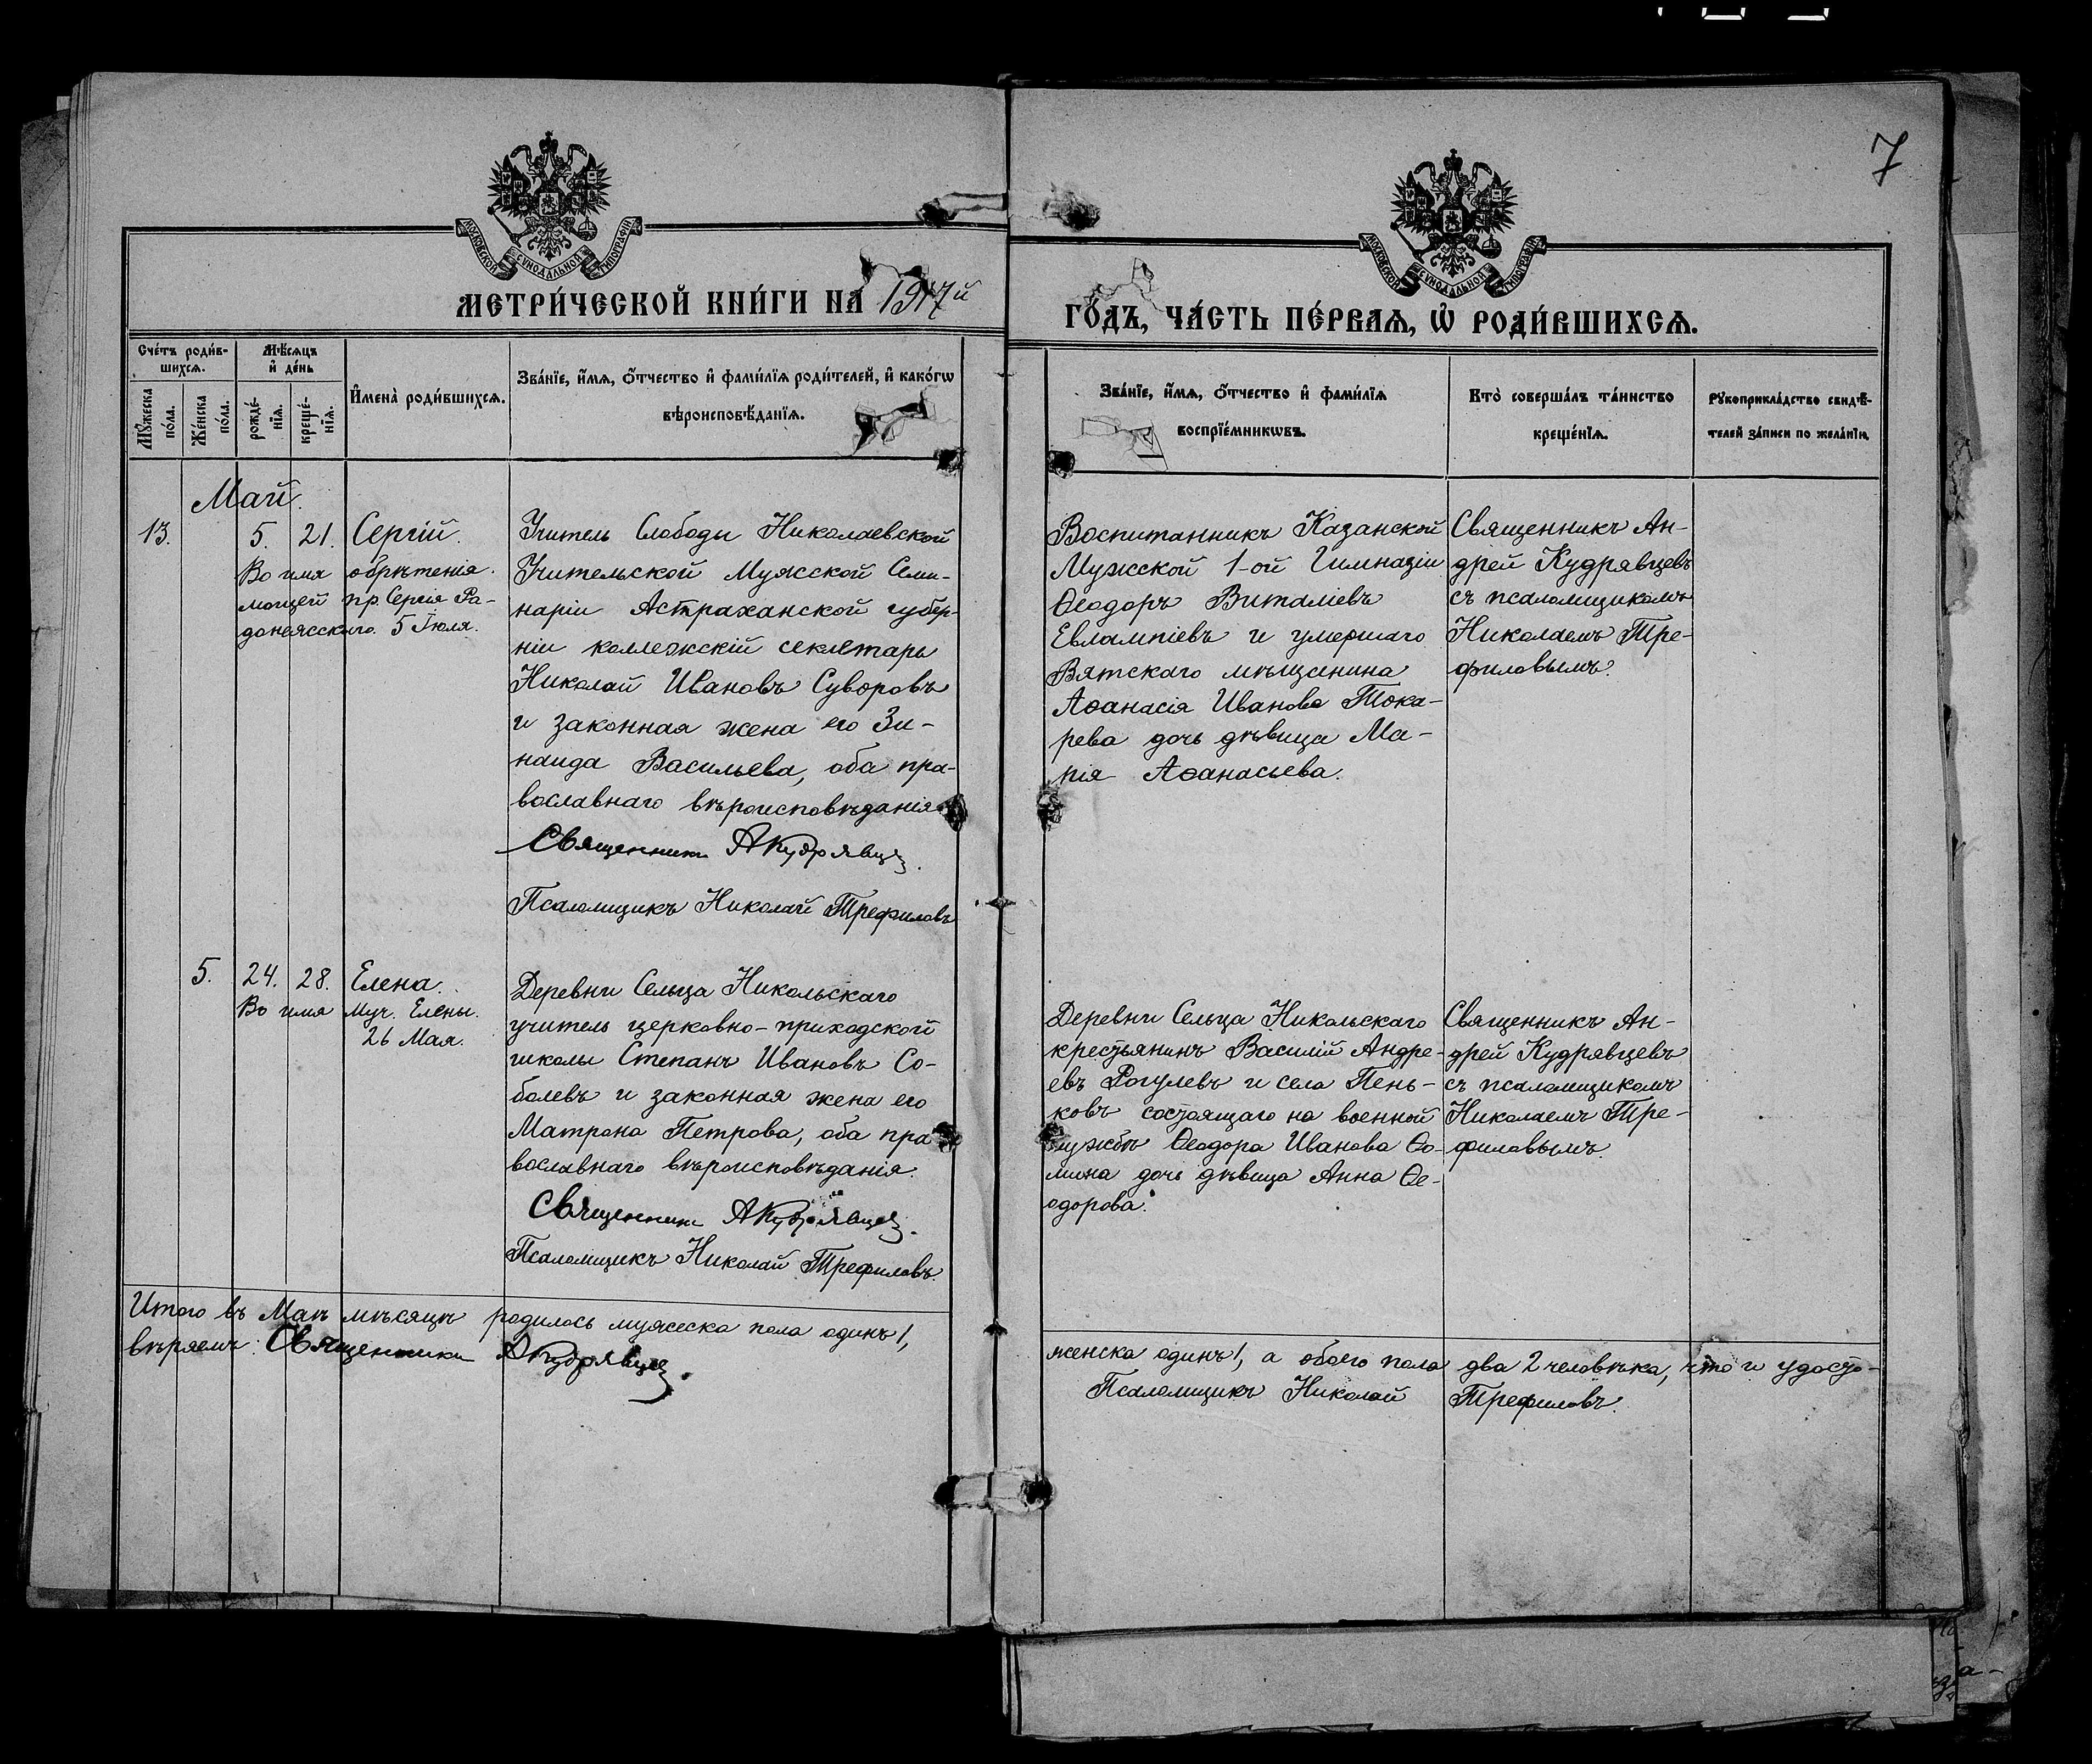 7
МОСКОВСКОЙ СѴНОДАЛЬНОЙ ТИПОГРАФІИ
МОСКОВСКОЙ СѴНОДАЛЬНОЙ ТИПОГРАФІИ
МЕТРИ́ЧЕСКОЙ КНИ́ГИ НА 1917й
ГО́ДЪ, ЧА́СТЬ ПЕ́РВАѦ, Ѡ҆ РОДИ́ВШИХСѦ.
Сче́тъ роди́в-
шихсѧ.
Мꙋ́жеска
по́ла.
Же́нска
по́ла.
Мѣ́сѧцъ
и҆ де́нь
рожде́-
нїѧ.
креще́-
нїѧ.
И҆мена̀ роди́вшихсѧ.
Зва́нїе, и҆́мѧ, ѻ҆́тчество и҆ фами́лїѧ роди́телей, и҆ како́гѡ
вѣроисповѣ́данїѧ.
Зва́нїе, и҆́мѧ, ѻ҆́тчество и҆ фами́лїѧ
воспрїе́мникѡвъ.
Кто̀ соверша́лъ та́инство
креще́нїѧ.
Рꙋкоприкла́дство свидѣ́-
телей за́писи по жела́нїю.
Май.
13.
5.
21.
Сергій.
Во имя обрѣтенія
мощей пр. Сергія Ра-
донежскаго. 5 Іюля.
Учитель Слободы Николаевской
Учительской Мужской Семи-
наріи Астраханской губер-
ніи коллежскій секретарь
Николай Ивановъ Суворовъ
и законная жена его Зи-
наида Васильева, оба пра-
вославнаго вѣроисповѣданія
Священникъ А Кудрявцевъ.
Псаломщикъ Николай Трефиловъ
Воспитанникъ Казанской
Мужской 1-ой Гимназіи
Ѳеодоръ Виталіевъ
Евлампіевъ и умершаго
Вятскаго мѣщанина
Аѳанасія Иванова Тока-
рева дочь дѣвица Ма-
рія Аѳанасьева.
Священникъ Ан-
дрей Кудрявцевъ
съ псаломщикомъ
Николаемъ Тре-
филовымъ.
5.
24.
28.
Елена.
Во имя Муч. Елены.
26 Мая.
Деревни Сельца Никольскаго
учитель церковно-приходской
школы Степанъ Ивановъ Со-
болевъ и законная жена его
Матрона Петрова, оба пра
вославнаго вѣроисповѣданія.
Священникъ А Кудрявцевъ.
Псаломщикъ Николай Трефиловъ.
Деревни Сельца Никольскаго
крестьянинъ Василій Андре-
евъ Рогулевъ и села Пень-
ковъ состоящаго на военной
службѣ Ѳеодора Иванова Ѳо-
мина дочь дѣвица Анна Ѳе-
одорова.
Священникъ Ан-
дрей Кудрявцевъ
съ псаломщикомъ
Николаемъ Тре-
филовымъ.
Итого въ Маѣ мѣсяцѣ родилось мужеска пола одинъ 1,
женска одинъ 1, а обоего пола два 2 человѣка, что и удосто-
вѣряемъ: Священникъ А Кудрявцевъ.
Псаломщикъ Николай Трефиловъ.